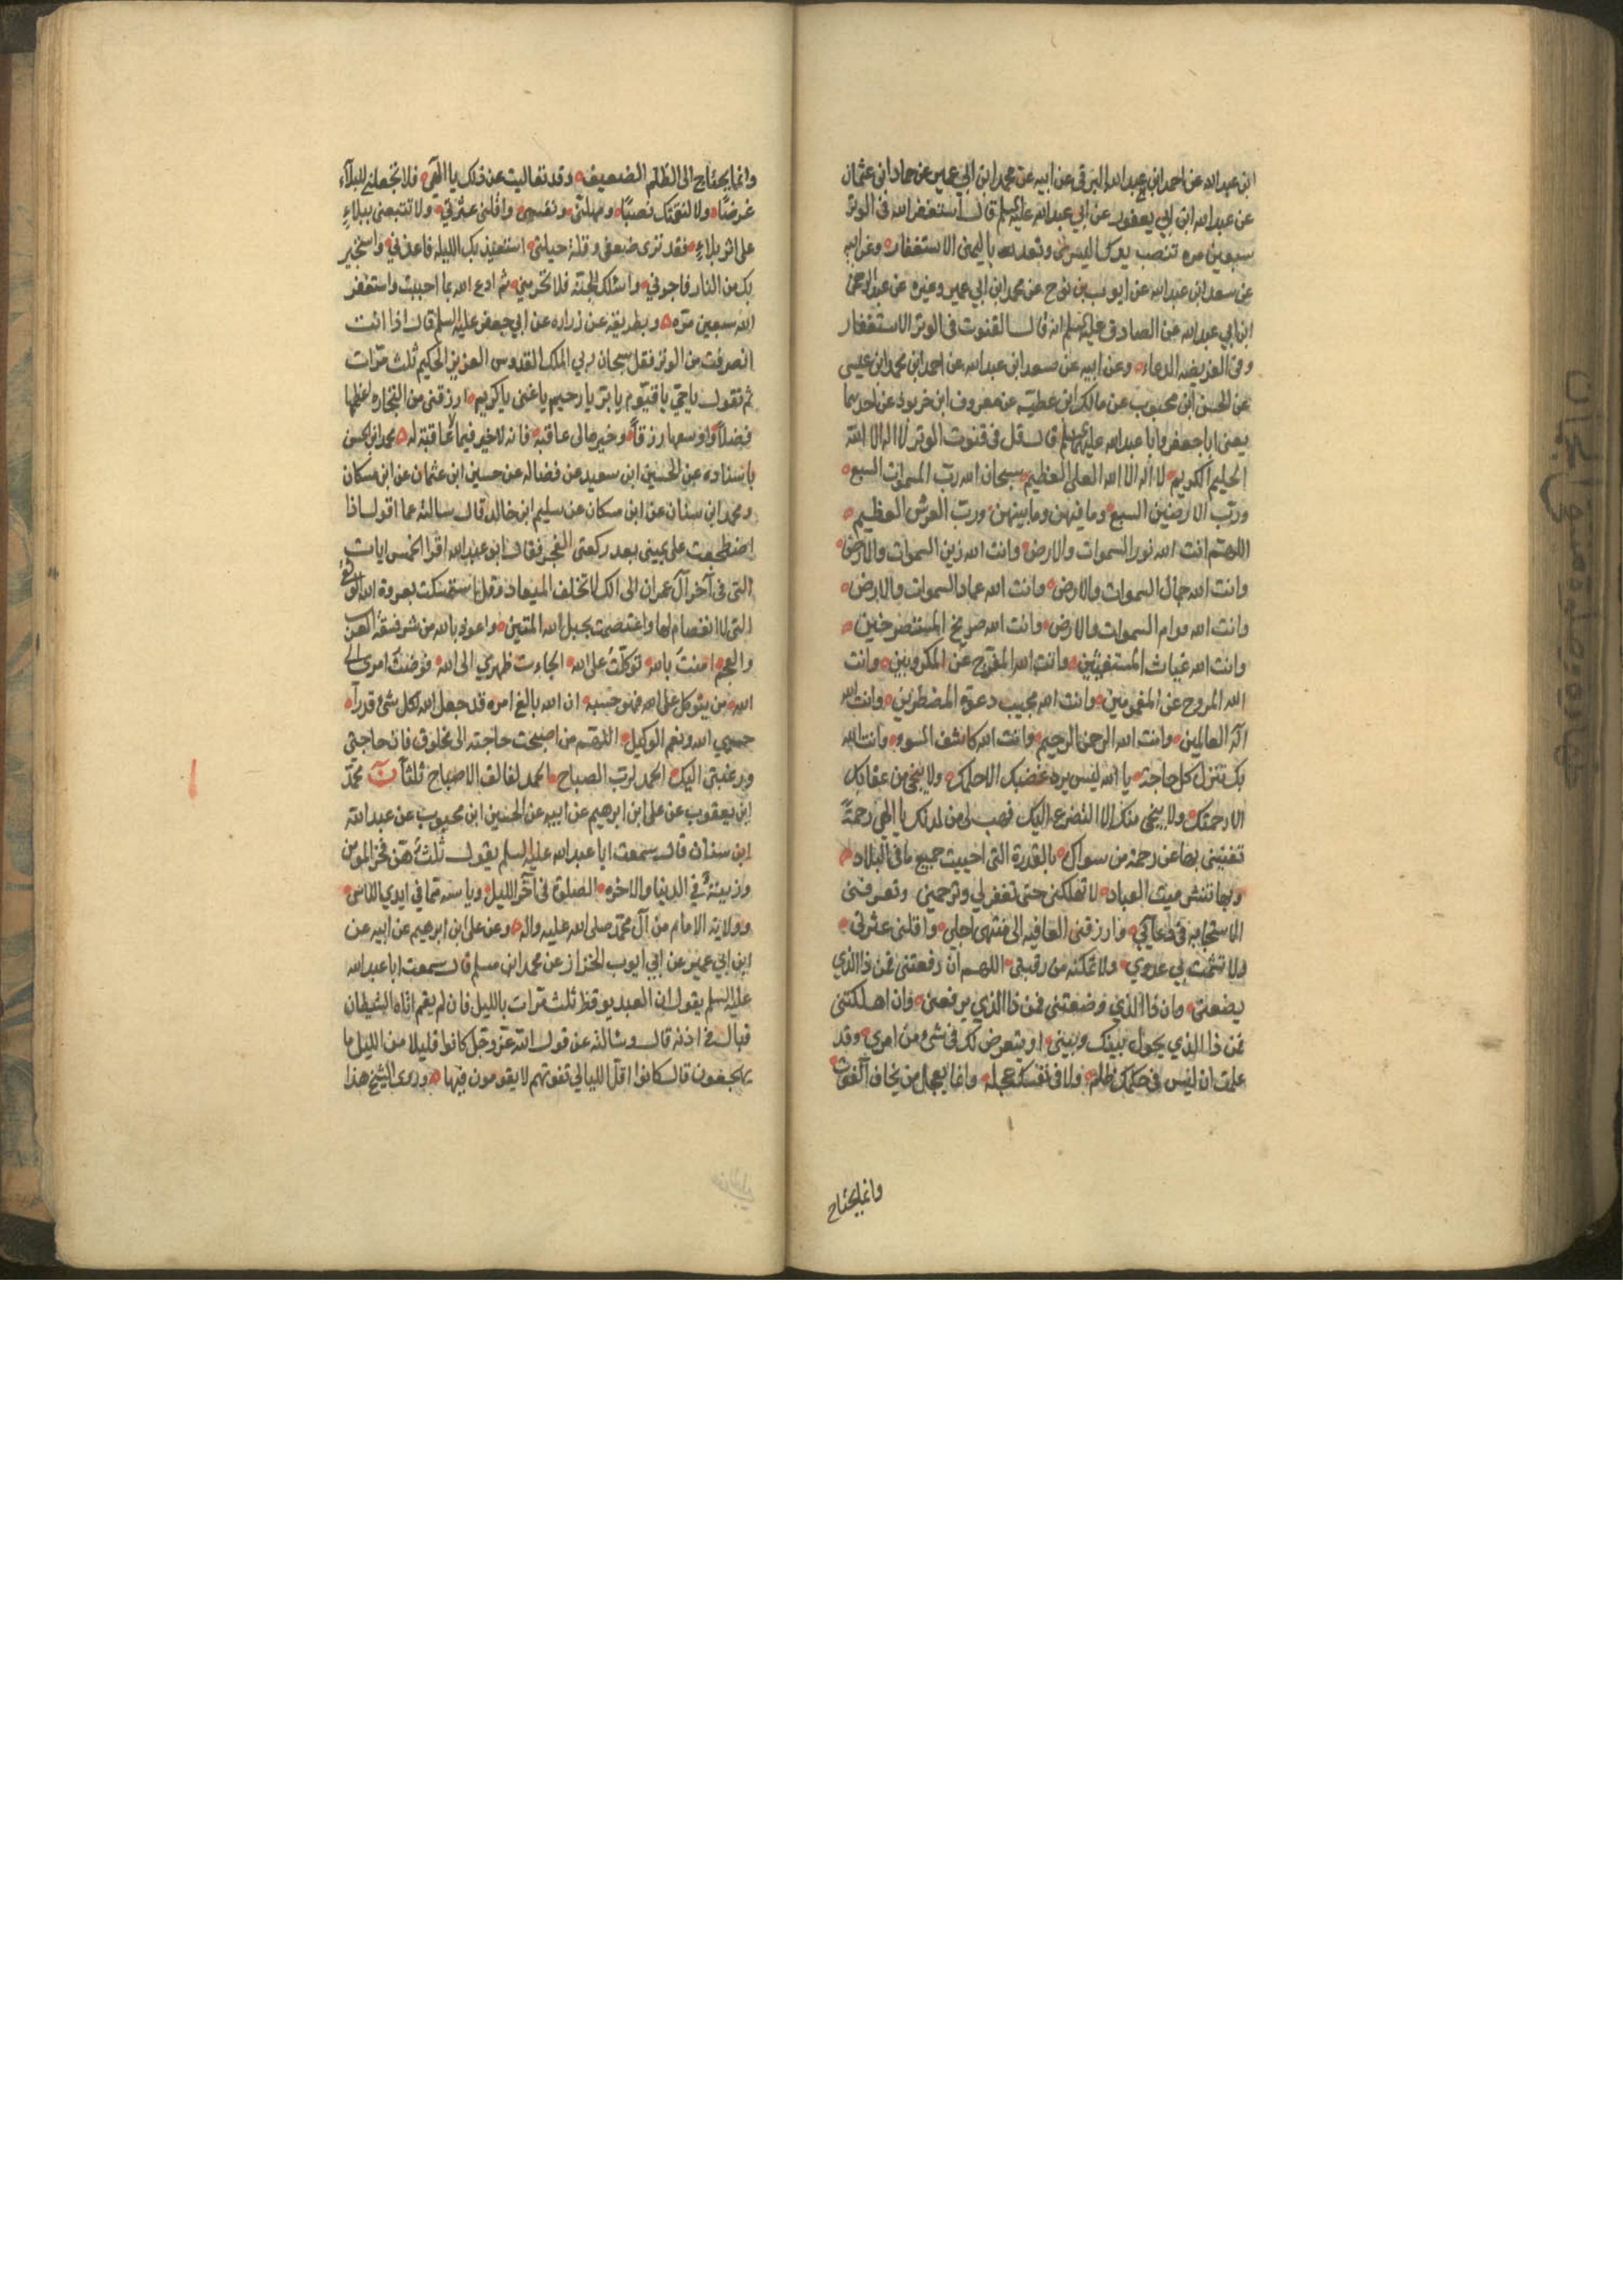 ابن عبد الله عن احمد ابن عبد الله البرقي عن ابيه عن محمد ابن ابي عمير عن حماد ابن عثمان
عن عبد الله ابن ابي يعفور عن ابي عبد الله عليه السلم قال استغفر الله في الوتر
سبعين مره تنصب يدك اليسرى وتعد باليمنى الاستغفار وعن ابيه
عن سعد ابن عبد الله عن ايوب بن نوح عن محمد ابن ابي عمير وغيره عن عبد الرحمن
ابن ابي عبد الله عن الصادق عليه السلم انه قال القنوت في الوتر الاستغفار
وفي الفريضه الدعاء وعن ابيه عن سعد ابن عبد الله عن احمد ابن محمد ابن عيسى
عن الحسن ابن محبوب عن مالك ابن عطيه عن معروف ابن خربوذ عن احدهما
يعني ابا جعفر وابا عبد الله عليهما السلم قال قل في قنوت الوتر لا اله الا الله
الحليم الكريم لا اله الا الله العلي العظيم سبحان الله رب السموات السبع
ورب الارضين السبع وما فيهن وما بينهن ورب العرش العظيم
اللهم انت الله نور السموات والارض وانت الله زين السموات والارض
وانت الله جمال السموات والارض وانت الله عماد السموات والارض
وانت الله قوام السموات والارض وانت الله صريخ المستصرخين
وانت الله غياث المستغيثين وانت الله المفرج عن المكروبين وانت
الله المروح عن المغمومين وانت الله مجيب دعوة المضطرين وانت الله
اله العالمين وانت الله الرحمن الرحيم وانت الله كاشف السوء وانت الله
بك تنزل كل حاجة يا الله ليس يرد غضبك الا حلمك ولا ينجي من عقابك
الا رحمتك ولا ينجي منك الا التضرع اليك فهب لي من لدنك يا الهي رحمةً
تغنيني بها عن رحمة من سواك بالقدرة التي احييت جميع ما في البلاد
وبها تنشر ميت العباد لا تهلكني حتى تغفر لي وترحمني وتعرفني
الاستجابه في دعائي وارزقني العافيه الى منتهى اجلي واقلني عثرتي
ولا تشمت بي عدوي ولا تمكنه من رقبتي اللهم ان رفعتني فمن ذا الذي
يضعني وان ذا الذي وضعتني فمن ذا الذي يرفعني وان اهلكتني
فمن ذا الذي يحول بينك وبيني او يتعرض لك في شيء من امري وقد
علمت ان ليس في حكمك ظلم ولا في نقمتك عجله وانما يعجل من يخاف الفوت
وانما يحتاج
وانما يحتاج الى الظلم الضعيف وقد تعاليت عن ذلك يا الهي فلا تجعلني للبلاء
غرضًا ولا لنقمتك نصبًا ومهلني ونفسني واقلني عثرتي ولا تتبعني ببلاء
على اثر بلاء فقد ترى ضعفي وقلة حيلتي استعيذ بك الليله فاعذني واستجير
بك من النار فاجرني واسئلك الجنه فلا تحرمني ثم ادع الله بما احببت واستغفر
الله سبعين مره وبطريقه عن زراره عن ابي جعفر عليه السلم قال اذا انت
انصرفت من الوتر فقل سبحان ربي الملك القدوس العزيز الحكيم ثلث مرات
ثم تقول يا حي يا قيوم يا بر يا رحيم يا غني يا كريم ارزقني من التجاره اعظمها
فضلاً واوسعها رزقاً وخيرها لي عاقبة فانه لا خير فيما لا عاقبة له محمد ابن الحسن
باسناده عن الحسين ابن سعيد عن فضاله عن حسين ابن عثمان عن ابن مسكان
ومحمد ابن سنان عن ابن مسكان عن سليم ابن خالد قال سالته عما اقول اذا
اضطجعت على يميني بعد ركعتي الفجر فقال ابو عبد الله اقرا الخمس ايات
التي في آخر آل عمران الى انك لا تخلف الميعاد وقل استمسكت بعروة الله الوثقى
التي لا انفصام لها واعتصمت بحبل الله المتين واعوذ بالله من شر فسقة العرب
والعجم امنت بالله توكلت على الله الجاءت ظهري الى الله فوضت امري الى
الله من يتوكل على الله فهو حسبه ان الله بالغ امره قد جعل الله لكل شيء قدرا
حسبي الله ونعم الوكيل اللهم من اصبحت حاجته الى مخلوق فان حاجتي
ورغبتي اليك الحمد لرب الصباح الحمد لفالق الاصباح ثلثاً محمد
ابن يعقوب عن علي ابن ابرهيم عن ابيه عن الحسين ابن محبوب عن عبد الله
ابن سنان قال سمعت ابا عبد الله عليه السلم يقول ثلث هن فخر المومن
وزينة في الدنيا والاخره الصلوة في آخر الليل وياسه مما في ايدي الناس
وولاية الامام من آل محمد صلى الله عليه واله وعن علي ابن ابرهيم عن ابيه عن
ابن ابي عمير عن ابي ايوب الخزاز عن محمد ابن مسلم قال سمعت ابا عبد الله
عليه السلم يقول ان العبد يوقظ ثلث مرات بالليل فان لم يقم اتاه الشيطان
فبال في اذنه قال وسالته عن قول الله عز وجل كانوا قليلا من الليل ما
يهجعون قال كانوا اقل الليالي تفوتهم لا يقومون فيها وروى الشيخ هذا